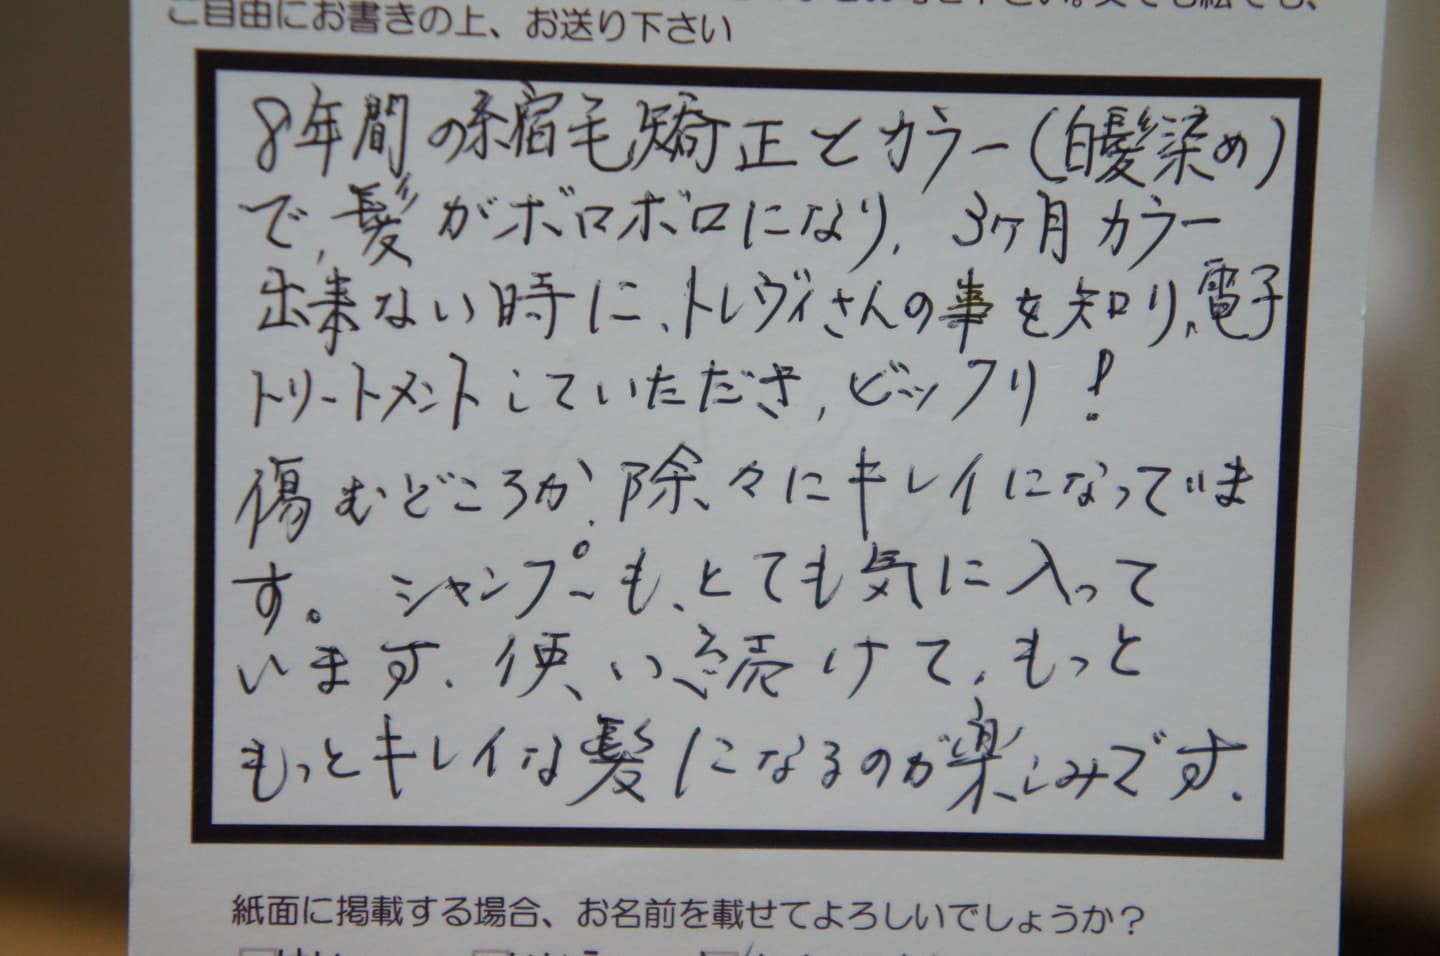 ご自由にお書きの上、お送り下さい
8年間の縮毛矯正とカラー(白髪染め)
で、髪がボロボロになり、3ヶ月カラー
出来ない時に、トレヴィさんの事を知り、電子
トリートメントしていただき、ビックリ!
傷むどころか、除々にキレイになっていま
す。シャンプーも、とても気に入って
います。使い続けて、もっと
もっとキレイな髪になるのが楽しみです。
紙面に掲載する場合、お名前を載せてよろしいでしょうか?